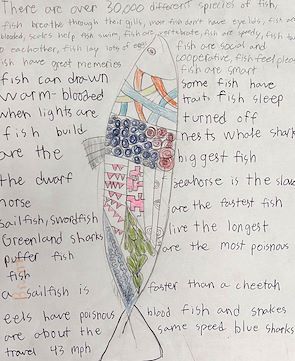 There are over 30,000 different species of fish,
fish breathe through their gills, most fish don't have eye lids, fish are
blooded, scales help fish swim, fish are vertebrate, fish are speedy, fish talk
to eachother, fish lay lots of eggs fish are social and
fish have great memories cooperative, fish feel
fish are smart
fish can drawn some fish have
warm-blooded trait, fish sleep
when lights are turned off
fish build nests whale shark
are the biggest fish
the dwarf seahorse is the
horse are the fastest fish
sailfish, swordfish live the longest
Greenland sharks are the most poisnous
puffer fish
fish
a sailfish is faster than a cheetah
eels have poisnous blood fish and snakes
are about the same speed blue sharks
travel 43 mph